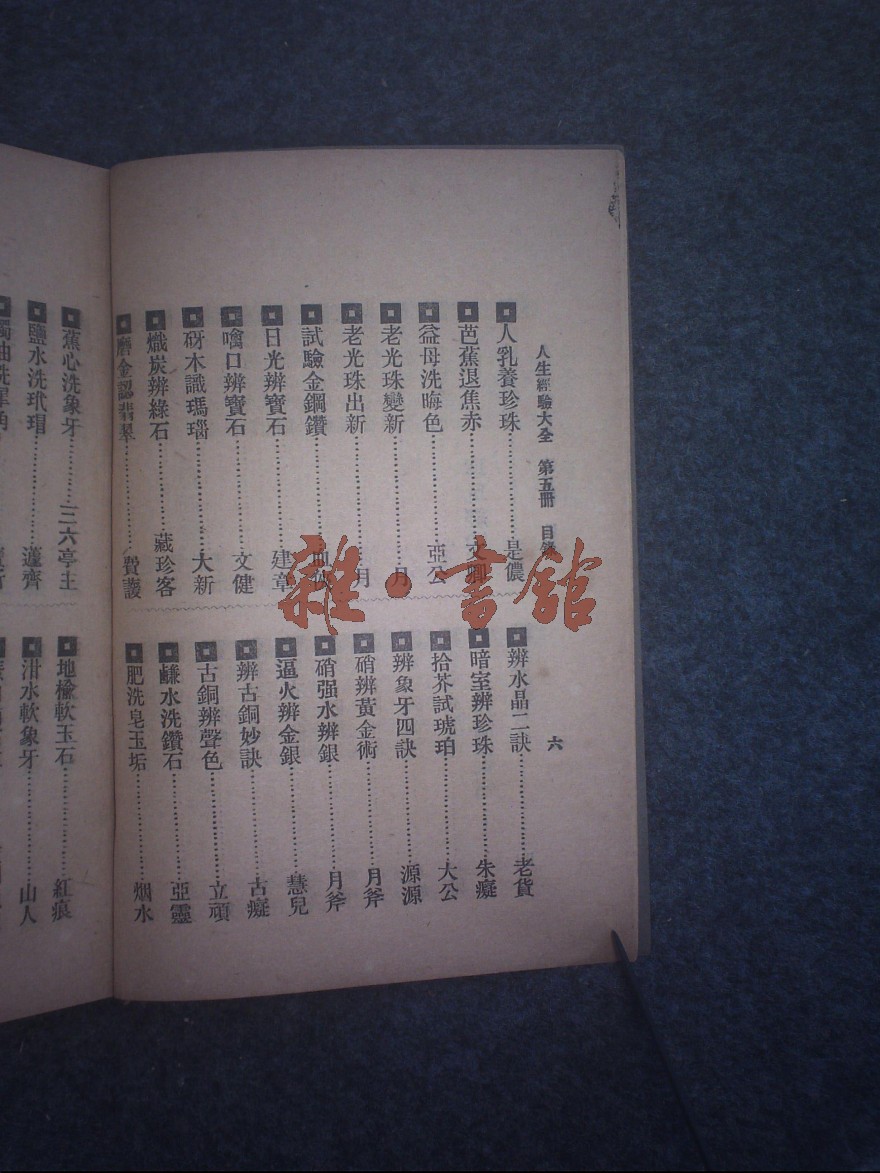 人生經驗大全 第五冊 目錄
六
人乳養珍珠……是儂
芭蕉退焦赤……文卿
益母洗晦色……亞公
老光珠變新……月
老光珠出新……月
試驗金鋼鑽……
日光辨寶石……建章
噙口辨寶石……文健
砑木識瑪瑙……大新
熾炭辨綠石……藏珍客
磨金認翡翠……費護
辨水晶二訣……老貨
暗室辨珍珠……朱癡
拾芥試琥珀……大公
辨象牙四訣……源源
硝辨黃金術……月斧
硝强水辨銀……月斧
逼火辨金銀……慧兒
辨古銅妙訣……古癡
古銅辨聲色……立頑
鹻水洗鑽石……亞靈
肥洗皂玉垢……烟水
蕉心洗象牙……三六亭主
鹽水洗玳瑁……蘧齊
地楡軟玉石……紅痕
泔水軟象牙……山人
雜·書館